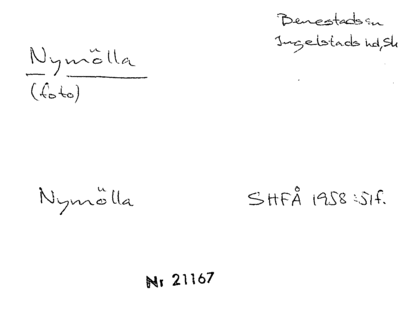 Benestads sn
Ingelstads hd, Sk
Nymölla
(foto)
Nymölla SHFÅ 1958:51f.
Nr 21167